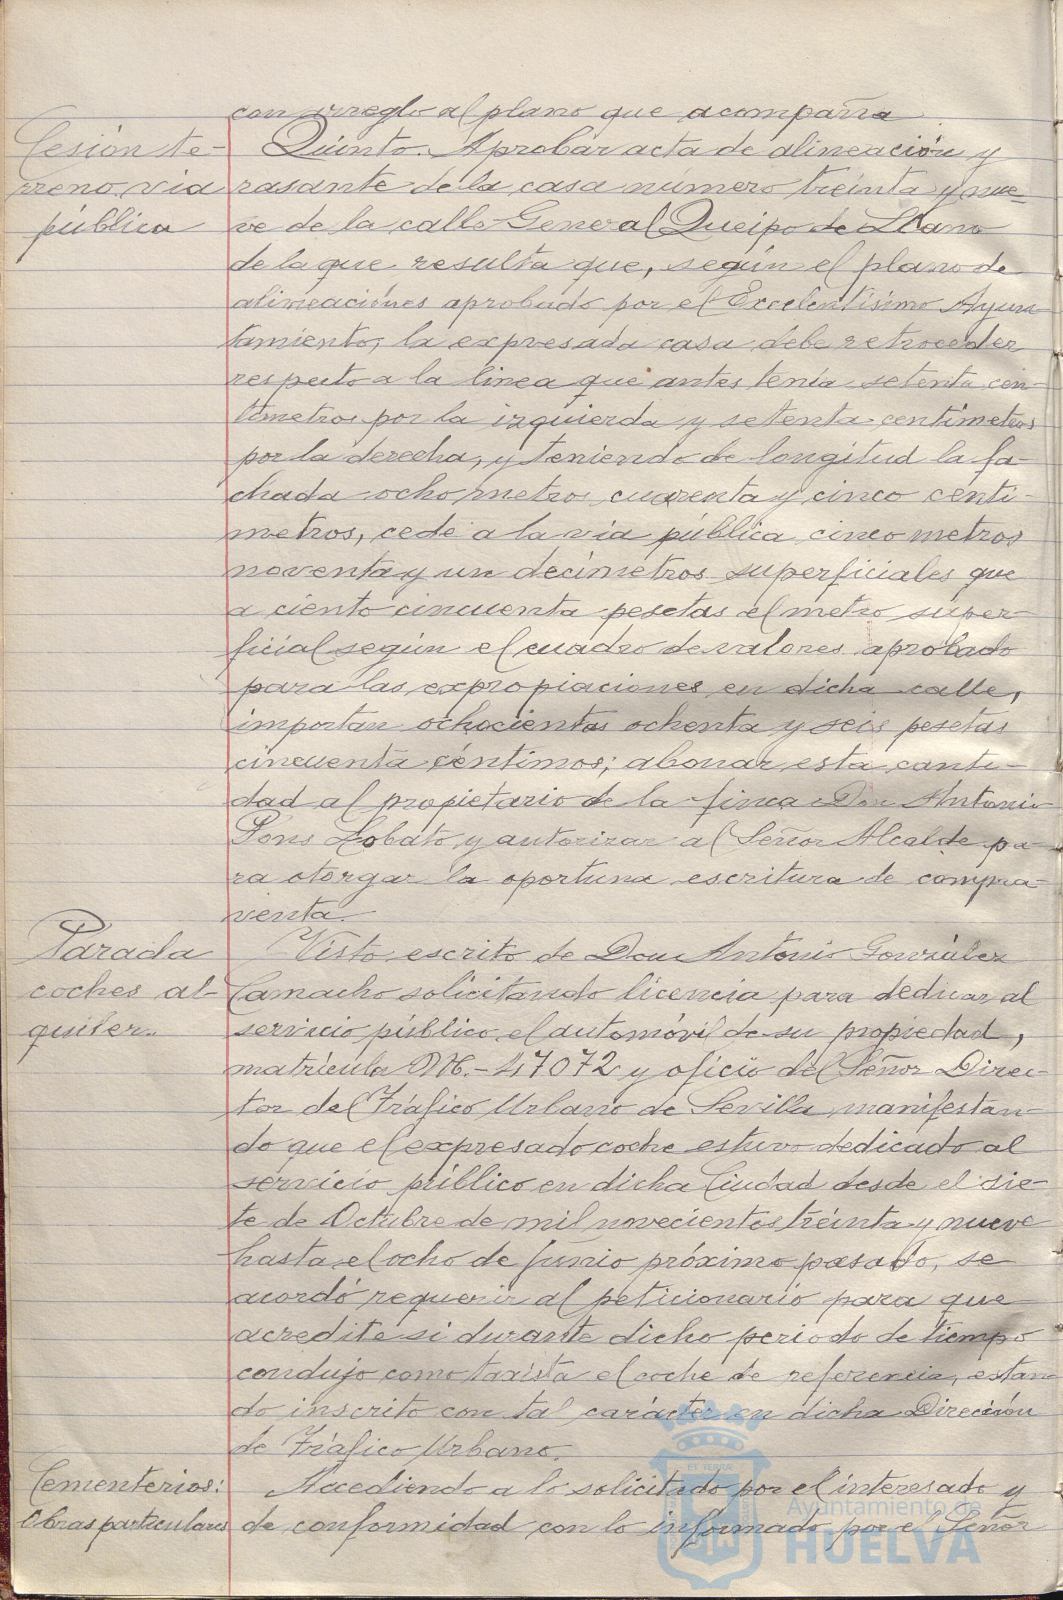 con arreglo al plano que acompaña
Cesión te-
rreno via
pública
Quinto. Aprobar acta de alineación y
rasante de la casa número treinta y nue-
ve de la calle General Queipo de Llano
de la que resulta que, según el plano de
alineaciónes aprobado por el Excelentísimo Ayun
tamiento, la expresada casa debe retroceder
respecto a la linea que antes tenía setenta cen-
timetros por la izquierda y setenta centímetros
por la derecha, y teniendo de longitud la fa-
chada ocho metros cuarenta y cinco centi-
metros, cede a la vía pública cinco metros
noventa y un decímetros superficiales que
a ciento cincuenta pesetas el metro super-
ficial según el cuadro de valores aprobado
para las expropiaciones en dicha calle,
importan ochocientas ochenta y seis pesetas
cincuenta céntimos; abonar esta canti-
dad al propietario de la finca Don Antonio
Pons Lobato y autorizar al Señor Alcalde pa-
ra otorgar la oportuna escritura de compra-
venta.
Parada
coches al-
quiler.
Visto escrito de Don Antonio González
Camacho solicitando licencia para dedicar al
servicio público el automóvil de su propiedad,
matrícula M.-47072 y oficio del Señor Direc-
tor del Tráfico Urbano de Sevilla manifestan-
do que el expresado coche estuvo dedicado al
servicio público en dicha Ciudad desde el sie-
te de Octubre de mil novecientos treinta y nueve
hasta el ocho de Junio próximo pasado, se
acordó requerir al peticionario para que
acredite si durante dicho periodo de tiempo
condujo como taxista el coche de referencia, estan
do inscrito con tal carácter en dicha Dirección
de Tráfico Urbano.
Cementerios:
Obras particulares
Accediendo a lo solicitado por el interesado y
de conformidad con lo informado por el Señor
Ayuntamiento de
HUELVA